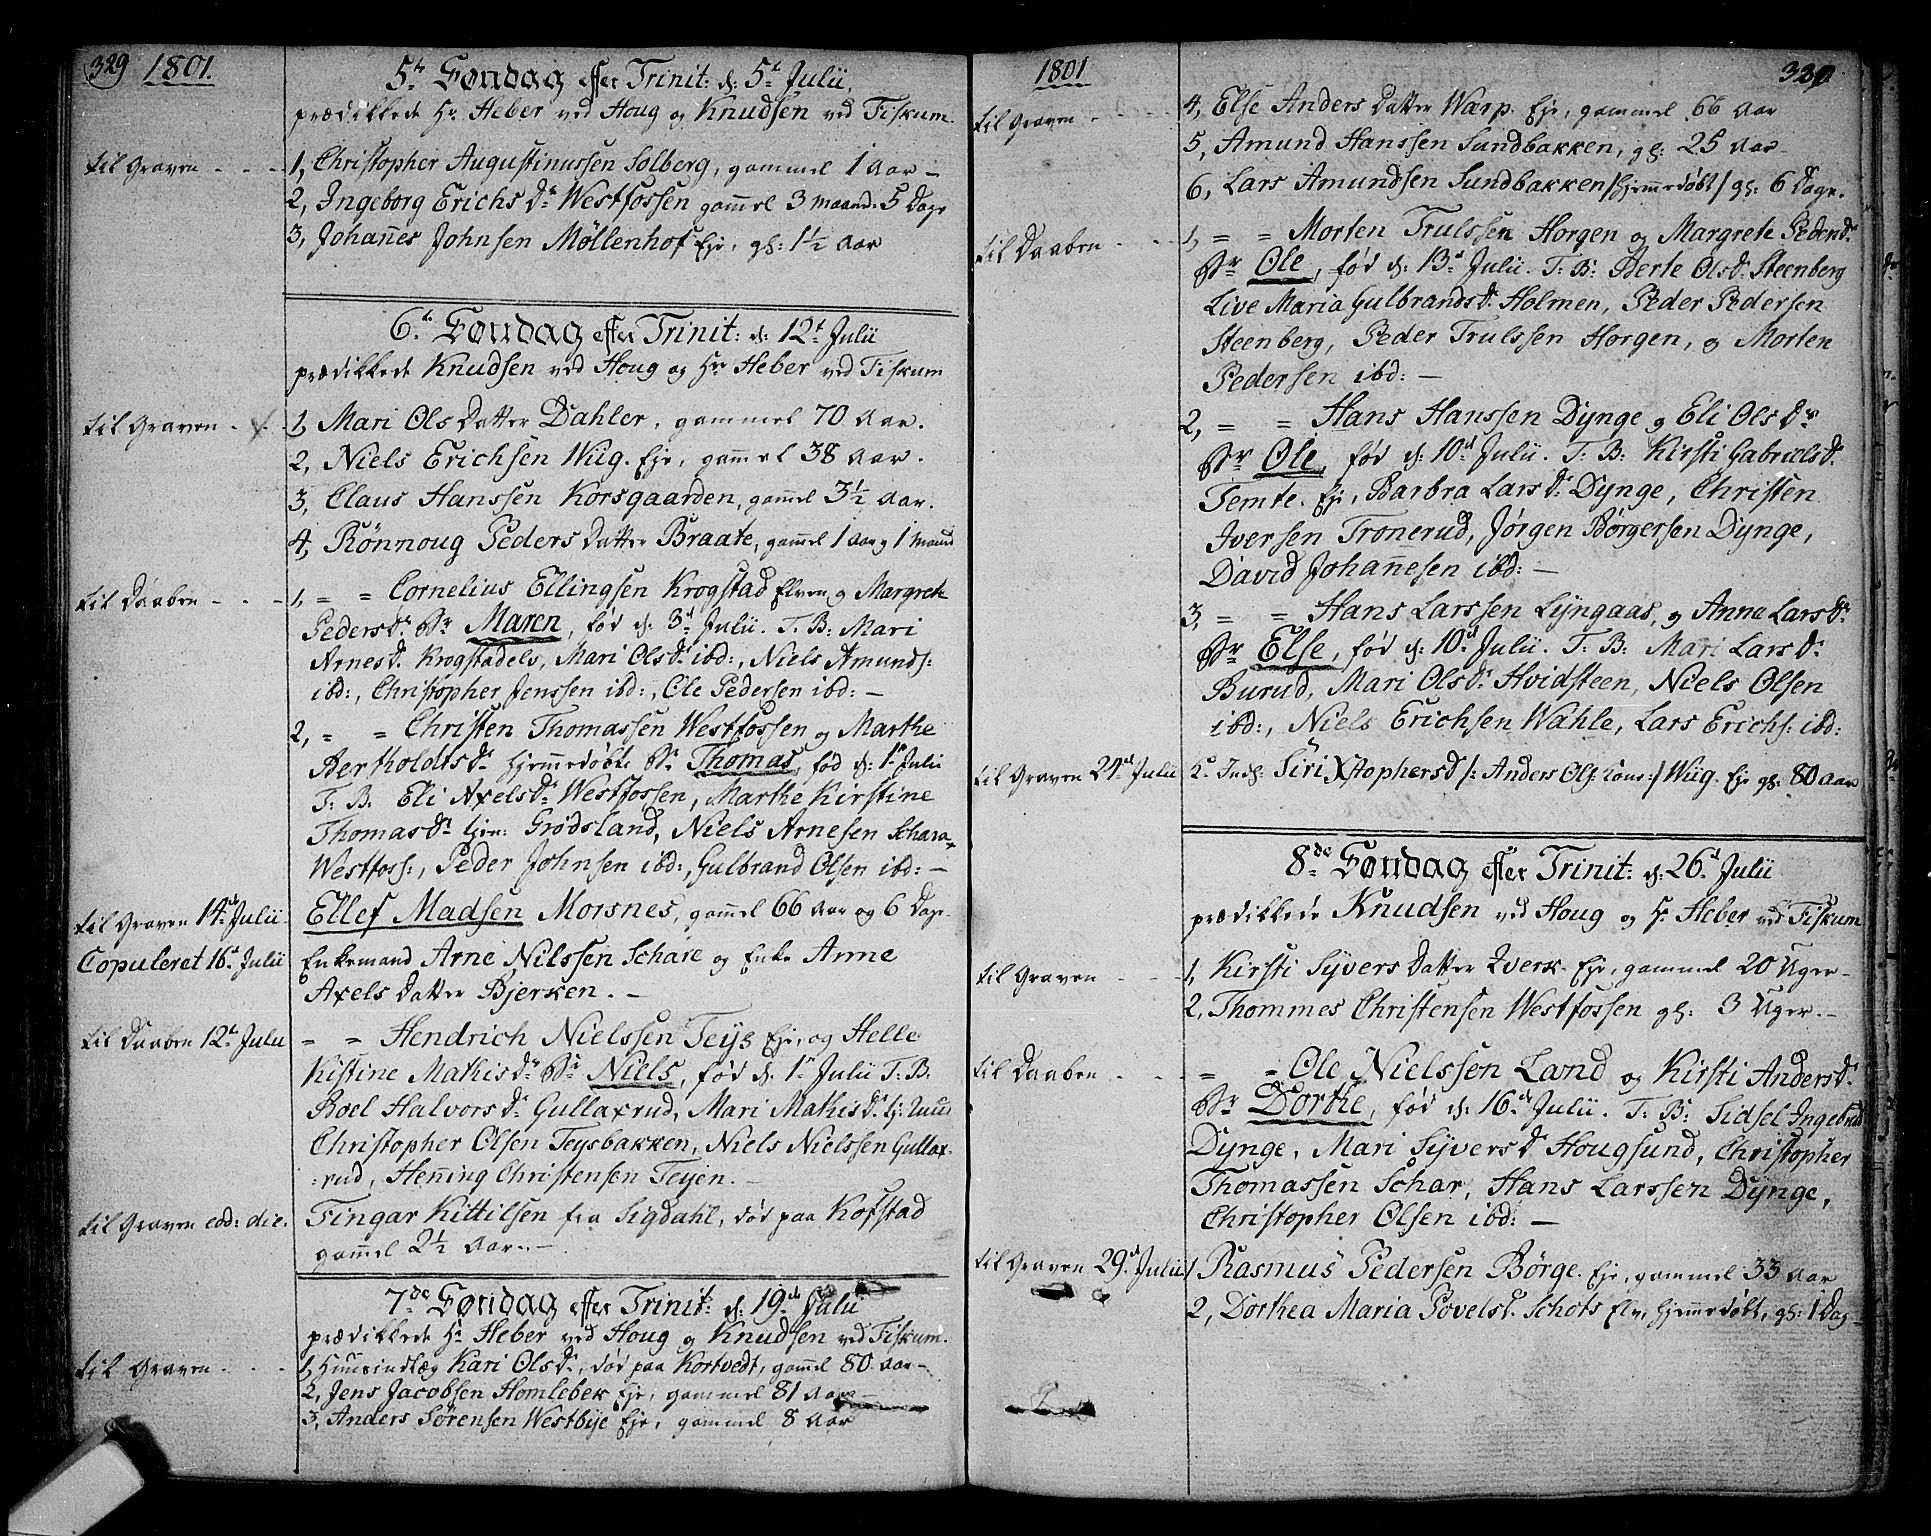 329 1801.
5te Søndag efter Trinit: d: 5te Julii,
prædikkede Hr Heber ved Houg og Knudsen ved Fiskum.
til Graven - - - 1, Christopher Augustinussen Solberg, gammel 1 Aar -
2, Ingeborg Erichs Dr Westfossen gammel 3 Maand: 5 Dage
3, Johannes Johnsen Møllenhof Eje, gl: 1½ Aar
6te Søndag efter Trinit: d: 12te Julii
prædikkede Knudsen ved Houg og Hr Heber ved Fiskum
til Graven - - 1, Mari Ols Datter Dahler, gammel 70 Aar.
2, Niels Erichsen Wiig. Eje, gammel 38 Aar.
3, Claus Hanssen Korsgaarden, gammel 3½ Aar.
4, Rönnoug Peders Datter Braate, gammel 1 Aar og 1 Maand
til Daaben - - - 1, = = Cornelius Ellingsen Krogstad Elven og Margrete
Pedersdr Br Maren, fød d: 3d Julii. T. B: Mari
Arnesd. Krogstadelv, Mari Olsdr ibd:, Niels Amunds:
ibd:, Christopher Jenssen ibd:, Ole Pedersen ibd: -
2, = = Christen Thomassen Westfossen og Marthe
Bertholdtsdr hjemmedøbte Br Thomas, fød d: 1te Julii
T: B: Eli Axelsdr Westfossen, Marthe Kirstine
Thomasdr tjen: Grødsland, Niels Arnesen Schara-
Westfoss:, Peder Johnsen ibd:, Gulbrand Olsen ibd: -
til Graven 14de Julii Ellef Madsen Morsnes, gammel 66 Aar og 6 Dage
Copuleret 16d Julii Enkemand Arne Nilssen Schare og Enke Anne
Axels Datter Bjerken. -
til Daaben 12te Julii = = Hendrich Nielssen Teys Eje, og Helle
Kistine Mathisdr Br Niels, fød d. 1te Julii T: B:
Roel Halvorsdr Gullaxrud, Mari Mathisdr tj:
Christopher Olsen Teysbakken, Niels Nielssen Gullax-
:rud, Henning Christensen Teyen. -
til Graven eod: die. Fingar Kittilsen fra Sigdahl, død paa Kofstad
gammel 2½ Aar. -
7de Søndag efter Trinit: d: 19de Julii
prædikkede Hr Heber ved Houg og Knudsen ved Fiskum.
til Graven - - - 1, Huusindlæg Kari Olsdr, død paa Kortvedt, gammel 80 Aar -
2, Jens Jacobsen Homlebek Eje, gammel 81 Aar -
3, Anders Sørensen Westbye Eje, gammel 8 Aar
1801 330
til Graven - - - 4, Else Anders Datter Warp. Eje, gammel 66 Aar
5, Amund Hanssen Sundbakken, gl: 25 Aar
6, Lars Amundsen Sundbakken /hjemmedøbt/ gl: 6 Dage.
til Daaben - - 1, = = Morten Trulssen Horgen og Margrete Pedersdr
Br Ole, fød d: 13d Julii. T: B: Berte Olsdr Steenberg
Live Maria Gulbrandsdr Holmen, Peder Pedersen
Steenberg, Peder Trulssen Horgen, og Morten
Pedersen ibd: -
2, = = Hans Hanssen Dynge og Eli Olsdr
Br Ole, fød d: 10d Julii. T. B: Kirsti Gabrielsd.
Temte. Eje, Barbra Larsdr Dynge, Christen
Iversen Tronerud, Jørgen Børgersen Dynge,
David Johannesen ibd: -
3, = = Hans Larssen Lyngaas, og Anne Larsdr
Br Else, fød d: 10d Julii. T: B: Mari Larsdr
Burud, Mari Olsdr Hvidsteen, Niels Olsen
ibd:, Niels Erichsen Wahle, Lars Erichs: ibd:
til Graven 24de Julii Siri Xstophersd /: Anders Ols: Kone:/ Wiig. Eje gl: 80 Aar
8de Søndag efter Trinit: d: 26d Julii
prædikkede Knudsen ved Houg og Hr Heber ved Fiskum
til Graven - - 1, Kirsti Syvers Datter Qverk. Eje, gammel 20 Uger -
2, Thommes Christensen Westfossen gl: 3 Uger. -
til Daaben - - - = = Ole Nielssen Land og Kirsti Andersdr
Br Dorthe, fød d: 16de Julii. T. B: Sidsel
Dynge, Mari Syversdr Hougsund, Christopher
Thomassen Schar, Hans Larssen Dynge,
Christopher Olsen ibd: -
til Graven 29de Julii 1, Rasmus Pedersen Börge. Eje, gammel 33 Aar
2, Dorthea Maria Povelsd. Schots Elv, hjemmedøbt, gl: 1 Dag -